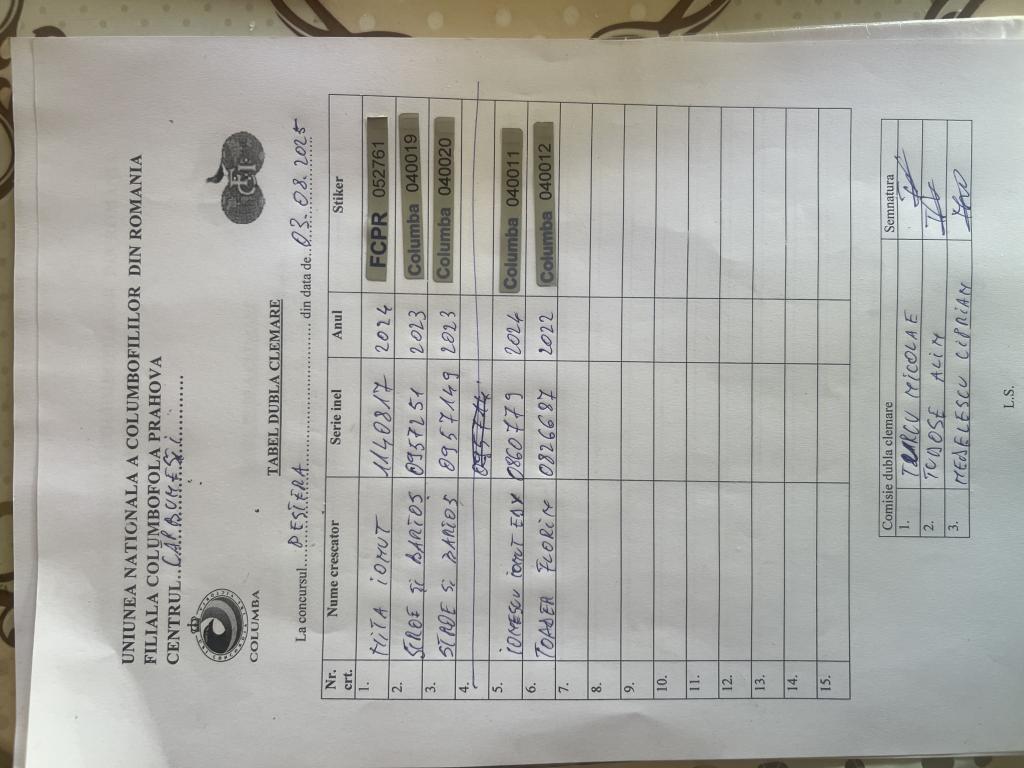 UNIUNEA NATIONALA A COLUMBOFILILOR DIN ROMANIA
FILIALA COLUMBOFOLA PRAHOVA
CENTRUL..CĂRBUNEȘI...........
COLUMBA
TABEL DUBLA CLEMARE
La concursul....PEȘTERA.................... din data de..03.08.2025......
Nr. crt. Nume crescator Serie inel Anul Stiker
1. MIȚA IONUT 1140817 2024 FCPR 052761
2. STROE ȘI BARTOS 0957251 2023 Columba 040019
3. STROE SI BARTOS 0957149 2023 Columba 040020
4.
5. IONESCU IONUT EDY 0860779 2024 Columba 040011
6. TOADER FLORIN 0826687 2022 Columba 040012
7.
8.
9.
10.
11.
12.
13.
14.
15.
Comisie dubla clemare Semnatura
1. TURCU NICOLAE
2. TUDOSE ALIN
3. NEDELESCU CIPRIAN
L.S.